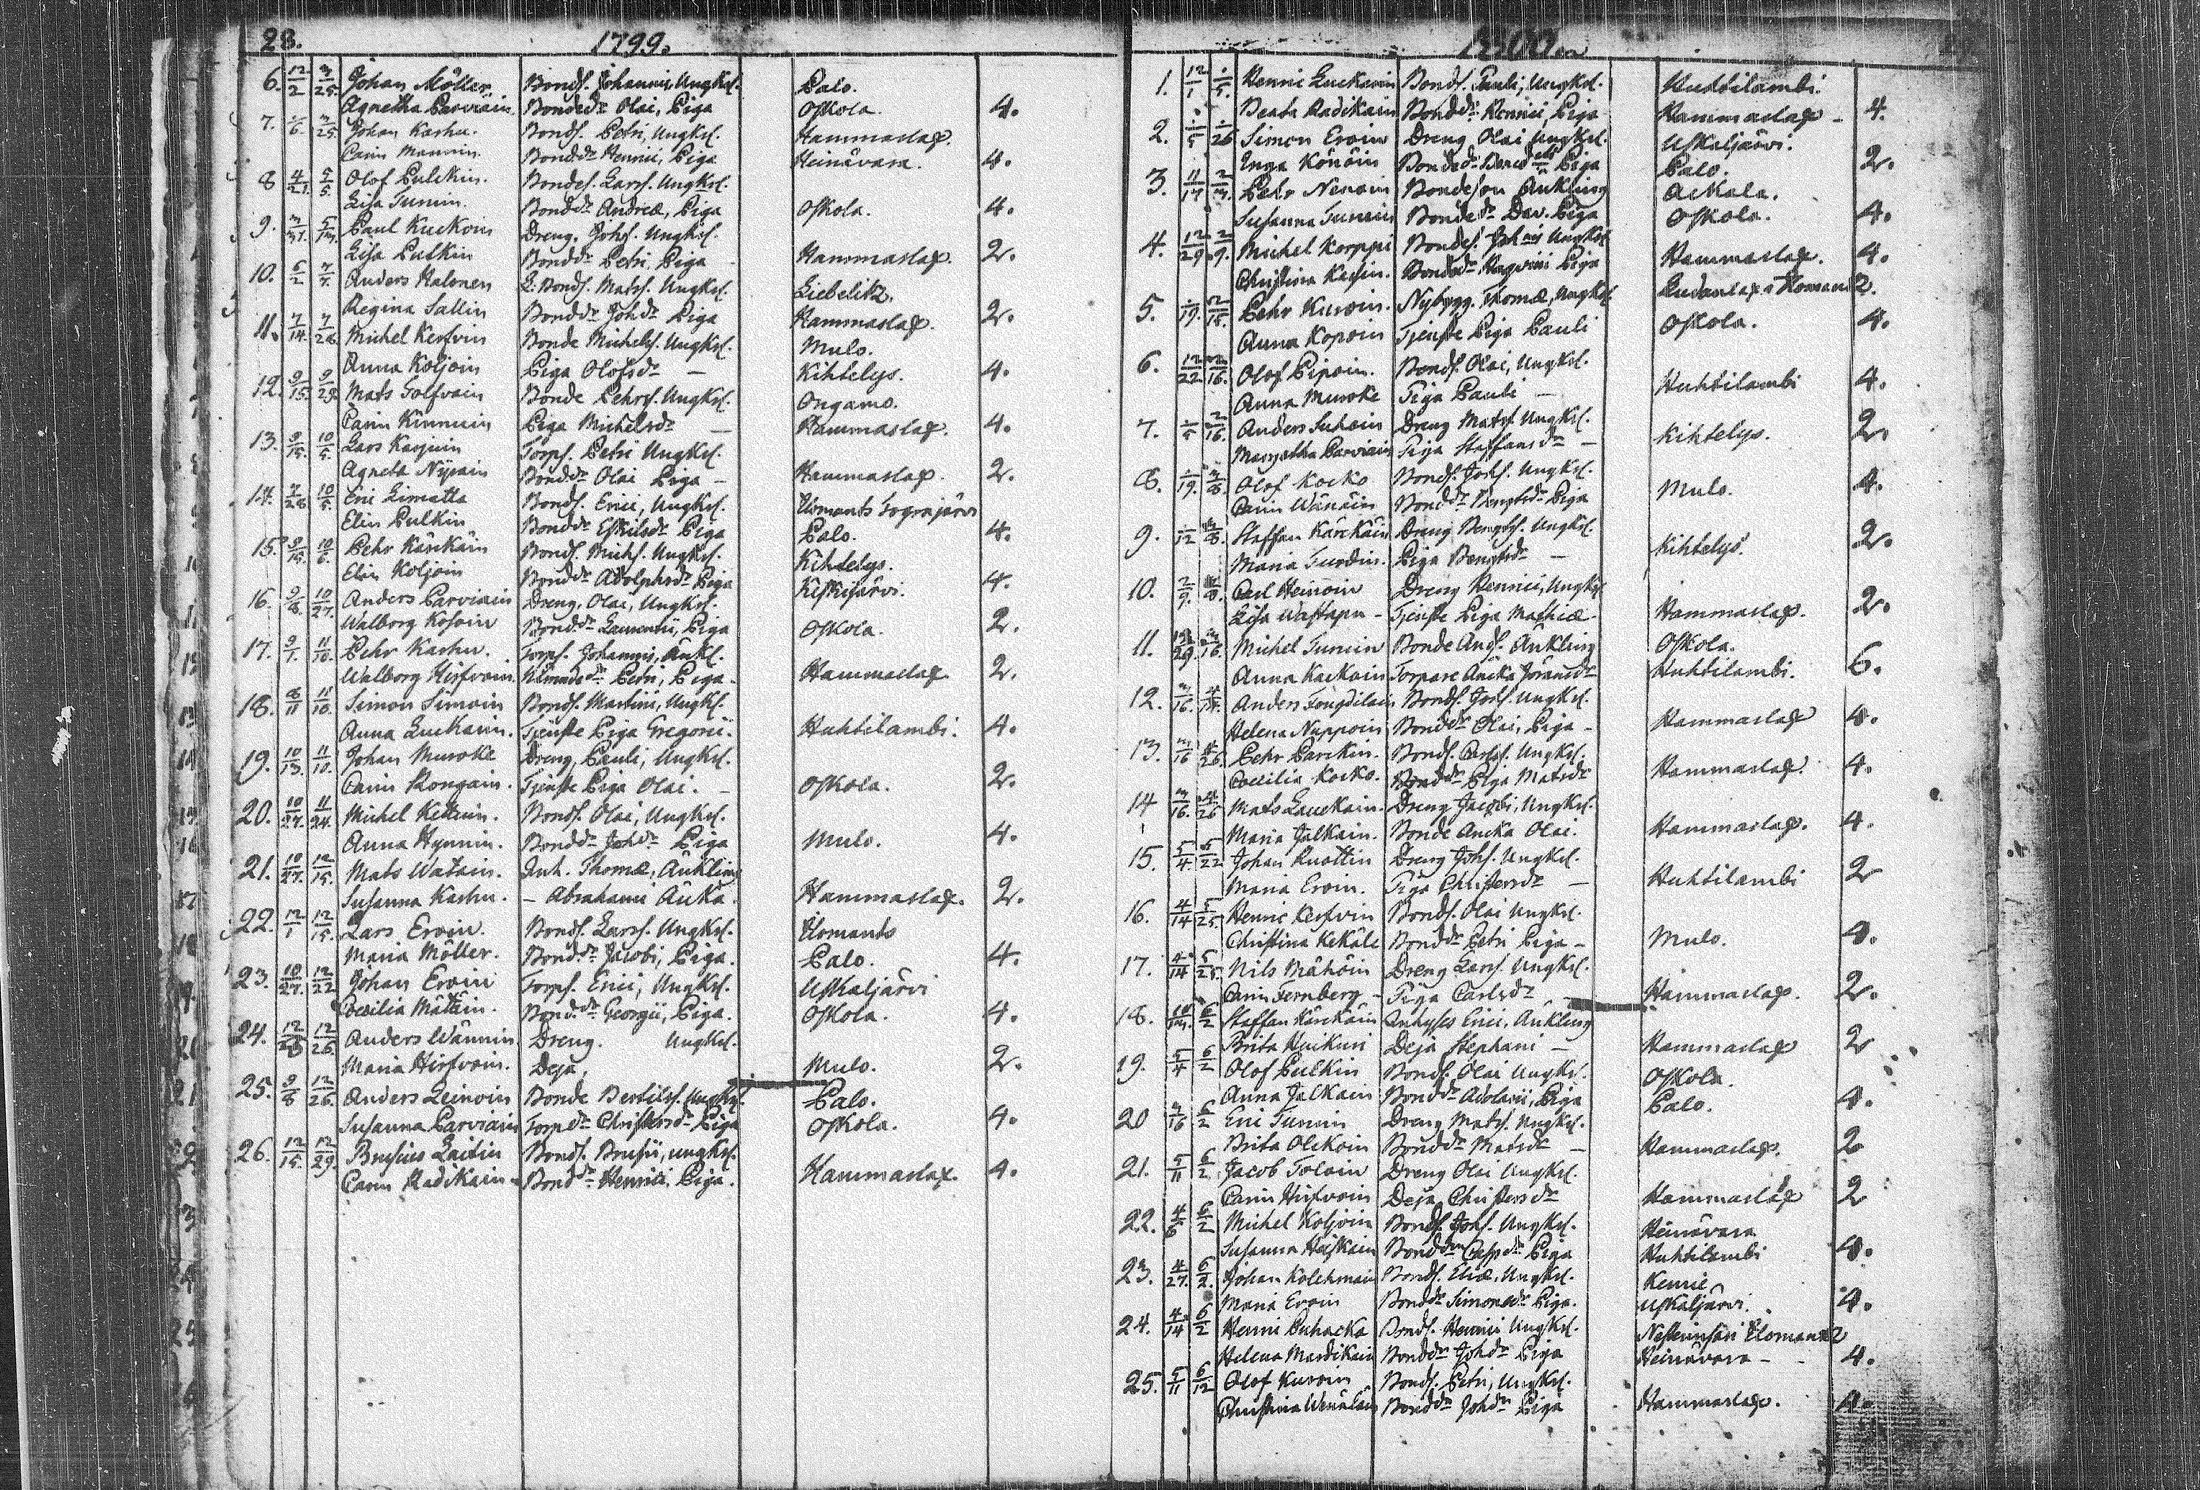 28. 1799.
6. 12/2 3/25. Johan Möller. Bonds. Johannis, Ungkrl. Palo.
Agnetha Parviain. Bondedr Olai, Piga Oskola. 4.
7. 1/6. 3/25 Johan Karhu. Bonds. Petri, Ungkrl. Hammaslax.
Carin Mannin. Bonddr Henrici, Piga Heinävara. 4.
8 4/21. 5/5. Olof Pulckin. Bondes. Larss. Ungkrl.
Lisa Turuin. Bonddr Andreæ, Piga Oskola. 4.
9. 3/31. 5/13. Paul Kuckoin Dreng. Johs. Ungkrl.
Lisa Pulkin Bonddr Petri, Piga Hammaslax. 2.
10. 6/2 7/7. Anders Halonen L. Bonds. Matss. Ungkrl. Liebelitz.
Regina Sallin Bonddr Johdr Piga Hammaslax. 2.
11. 7/14. 7/28 Michel Kerfvin Bonde Michelss. Ungkrl. Mulo.
Anna Koljoin Piga Olofsdr — Kihtelys. 4.
12. 9/15. 9/29. Mats Tolfvain Bonde Pehrss. Ungkrl. Ongamo.
Carin Kinnuin Piga Michelsdr — Hammaslax. 4.
13. 9/15. 10/5. Lars Karjuin Torps. Petri Ungkrl.
Agneta Nysain Bonddr Olai Piga — Hammaslax. 2.
14. 7/28 10/5. Eric Limatta Bonds. Erici, Ungkrl. Ilomants Sognsjärvi
Elin Pulkin Bonddr Eskilsdr Piga Palo. 4.
15. 9/15. 10/6. Pehr Kärckäin Bonds. Michs. Ungkrl. Kihtelys.
Elin Koljoin Bonddr Adolphsdr Piga Kiskisärvi. 4.
16. 9/8. 10/27. Anders Parviain Dreng, Olai, Ungkrl.
Walborg Kosoin Bonddr Laurentii, Piga Oskola. 2.
17. 9/1. 11/10. Pehr Karhu. Torps. Johannis, Änkl.
Walborg Hirfvoin. Petri, Piga. Hammaslax. 2.
18. 8/11 11/10. Simon Simoin Bonds. Martini, Ungkl.
Anna Luckain. Tjenste Piga Gregorii. Huhtilambi. 4.
19. 10/13. 11/10. Johan Muroke Dreng, Pauli, Ungkrl.
Carin Rongain. Tjenste Piga Olai. — Oskola. 2.
20. 10/27. 11/24. Michel Kettuin. Bonds. Olai, Ungkrl.
Anna Hynnin. Bonddr Johdr Piga Mulo. 4.
21. 10/27. 12/15. Mats Watain. Inh. Thomæ, Änkling
Susanna Karhu. — Abrahami Änka. Hammaslax. 2.
22. 12/1 12/15. Lars Eroin. Bonds. Larss. Ungkrl. Ilomants
Maria Möller. Bonddr Jacobi, Piga. Palo. 4.
23. 10/27. 12/22 Johan Eroin Torps. Erici, Ungkrl. Uskaljärvi
Coecilia Mätäin. Bonddr Georgii, Piga. Oskola. 4.
24. 12/26 12/26. Anders Wännin. Dreng. Ungkrl.
Maria Hirfvoin. Deja, Mulo. 2.
25. 9/8 12/26. Anders Leinoin Bonde Bertilss. Ungkrl. Palo.
Susanna Parviain Torpdr Christersdr Piga Oskola. 4.
26. 12/15. 12/29. Brusius Laitin Bonds. Brusii, ungkrl.
Carin Radikain Bonddr Henrici, Piga. Hammaslax. 4.
1800
1. 12/1 1/5. Henric Luckain Bonds. Pauli, Ungkrl. Huhtilambi.
Beata Radikain Bonddr Henrici, Piga Hammaslax — 4.
2. 1/5 1/26 Simon Eroin Dreng Olai Ungkrl. Uskaljärvi.
Inga Könöin Piga Palo. 2.
3. 11/17 2/2. Pehr Nenoin Bondeson Änkling Ackala.
Susanna Turuin Bondedr Dav. Piga Oskola. 4.
4. 12/29 2/9. Michel Korppi Bondes. Johnis Ungkrl. Hammaslax. 4.
Christina Karhin. Bondedr Piga Ilomants 2.
5. 1/19. 2/15. Pehr Kuroin. Nybygg. Thomæ, Ungkrl.
Anna Kopoin Tjenste Piga Pauli Oskola. 4.
6. 12/22 2/16. Olof Pipoin. Bonds. Olai, Ungkrl.
Anna Muroke Piga Pauli — Huhtilambi 4.
7. 1/5 2/16. Anders Suhoin Dreng Matss Ungkrl.
Margetha Parviain Piga Staffansdr — Kihtelys. 2.
8. 1/19. 3/8. Olof Kocko Bonds. Johs. Ungkrl.
Carin Wänäin Bonddr Bengtsdr Piga Mulo. 4.
9. 1/12 3/8. Staffan Kärckäin Dreng Bengtss. Ungkrl.
Maria Turdin. Piga Bengtsdr — Kihtelys. 2.
10. 2/9. 3/8. Carl Heinoin Dreng Henrici, Ungkrl
Lisa Wattapu — Tjenste Piga Mathiæ — Hammaslax. 2.
11. 12/29. 3/16 Michel Turuin Bonde Ands. Änkling Oskola.
Anna Kackain Torpare Äncka Göransdr Huhtilambi. 6.
12. 3/16. 4/14. Anders Tougdilain Bonds. Johs. Ungkrl.
Helena Nuppoin Bonddr Olai, Piga — Hammaslax 4.
13. 3/16 4/26. Pehr Parckin. Bonds. Carlss. Ungkrl.
Coecilia Kocko. Bonddr Piga Matsdr Hammaslax. 4.
14 3/16. 4/26 Mats Lauckain. Dreng Jacobi, Ungkrl.
Maria Jalkain. Bonde Ancka Olai. Hammaslax. 4.
15. 5/4 5/22 Johan Ruottin Dreng Johs. Ungkrl.
Maria Eroin. Piga Christersdr — Huhtilambi 2
16. 4/14 5/25. Henric Kerfvin Bonds. Olai Ungkrl.
Christina Kekäle Bonddr Petri Piga — Mulo. 4.
17. 4/14 5/25. Nils Mähöin Dreng Larss. Ungkrl.
Carin Fernberg — Piga Carlsdr Hammaslax. 2.
18. 10/13. 6/2 Staffan Kärckäin Inhyses Erici, Änkling
Brita Huckuin Deja Stephani — Hammaslax 2
19. 5/4 6/2 Olof Pulkin Bonds. Olai Ungkrl. Oskola.
Anna Jalkain Bonddr Adolarii, Piga Palo. 4.
20 3/16 6/2 Eric Turuin Dreng Matss. Ungkrl.
Brita Olckoin Bonddr Matsdr — Hammaslax. 2
21. 5/11 6/2 Jacob Tolain Dreng Olai Ungkrl.
Carin Hirfvoin Deja Christersdr Hammaslax 2
22. 4/6 6/2 Michel Koljoin Bonds. Johs. Ungkrl. Heinävara
Susanna Heiskain Bonddr Piga Huhtilambi 4.
23. 4/27. 6/2. Johan Kolehmain Bonds. Eliæ, Ungkrl. Kenuie
Maria Eroin Bonddr Simonsdr Piga. Uskaljärvi. 4.
24. 4/14 6/2 Henric Puhacka Bonds. Henrici Ungkrl. Ilomants 2
Helena Mardikain Bonddr Johdr Piga Heinävara — 4.
25. 5/11 6/12 Olof Kuroin Bonds. Petri, Ungkrl.
Christina Wenäläin Bonddr Johdr Piga Hammaslax. 4.